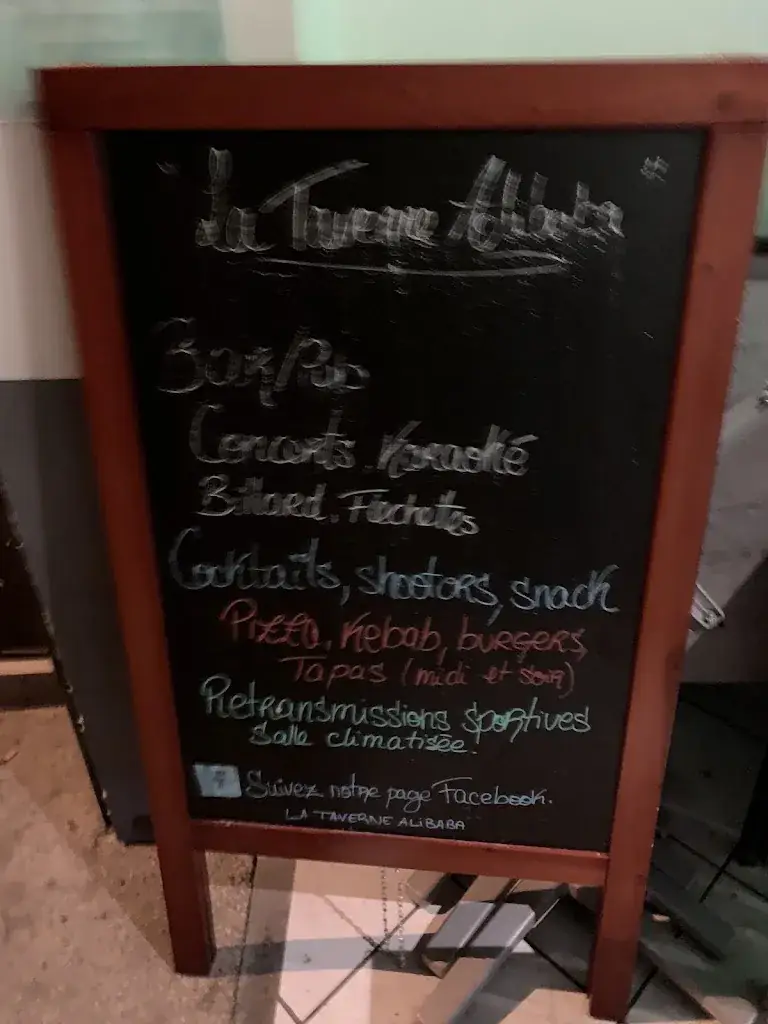 " La Taverne Alibaba "
Bar/Pub
Concerts. Karaoké
Billard. Flechettes
Cocktails, shooters, snack
Pizza, Kebab, burgers,
Tapas (midi et soir)
Retransmissions sportives
Salle climatisée.
Suivez notre page Facebook.
LA TAVERNE ALIBABA